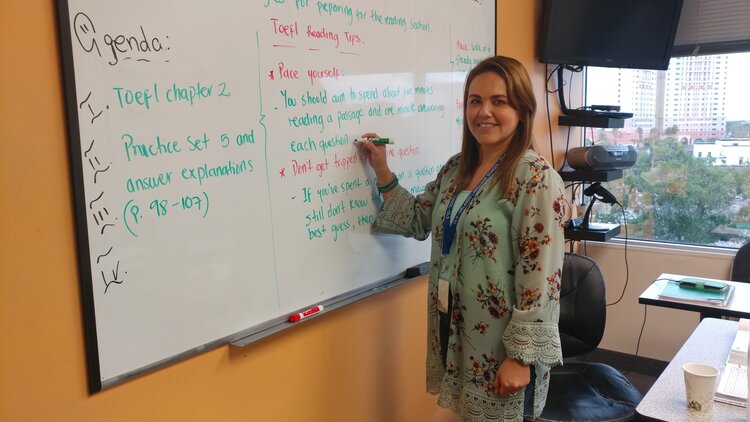 Agenda:
I.
Toefl chapter 2
II.
Practice Set 5 and
answer explanations
III.
(p. 98-107)
IV.
for preparing for the reading section
Toefl Reading Tips.
* Pace yourself.
- You should aim to spend about five minutes
reading a passage and one minute answering
each question
* Don't get tripped one question.
- If you've spent on a question
still don't know
best guess, then
Pace
steady